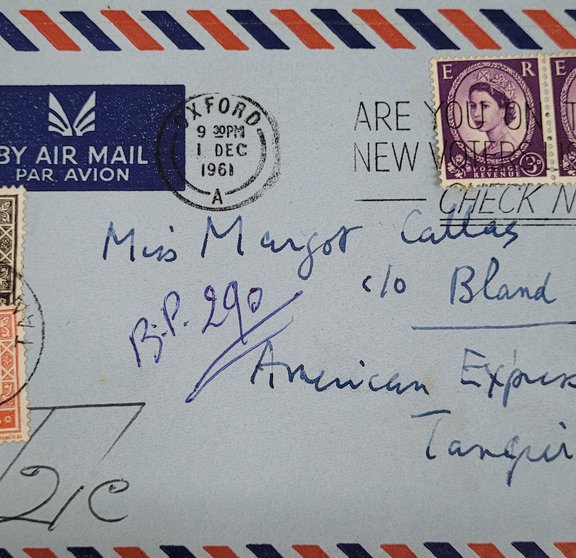 BY AIR MAIL
PAR AVION
OXFORD
9 30PM
1 DEC
1961
A
ARE YOU ON T
NEW VOTERS
CHECK N
E R
E
POSTAGE
REVENUE
3D
Miss Margot Callas
c/o Bland
B.P. 290
American Expres
Tangier
TAX
T 21c